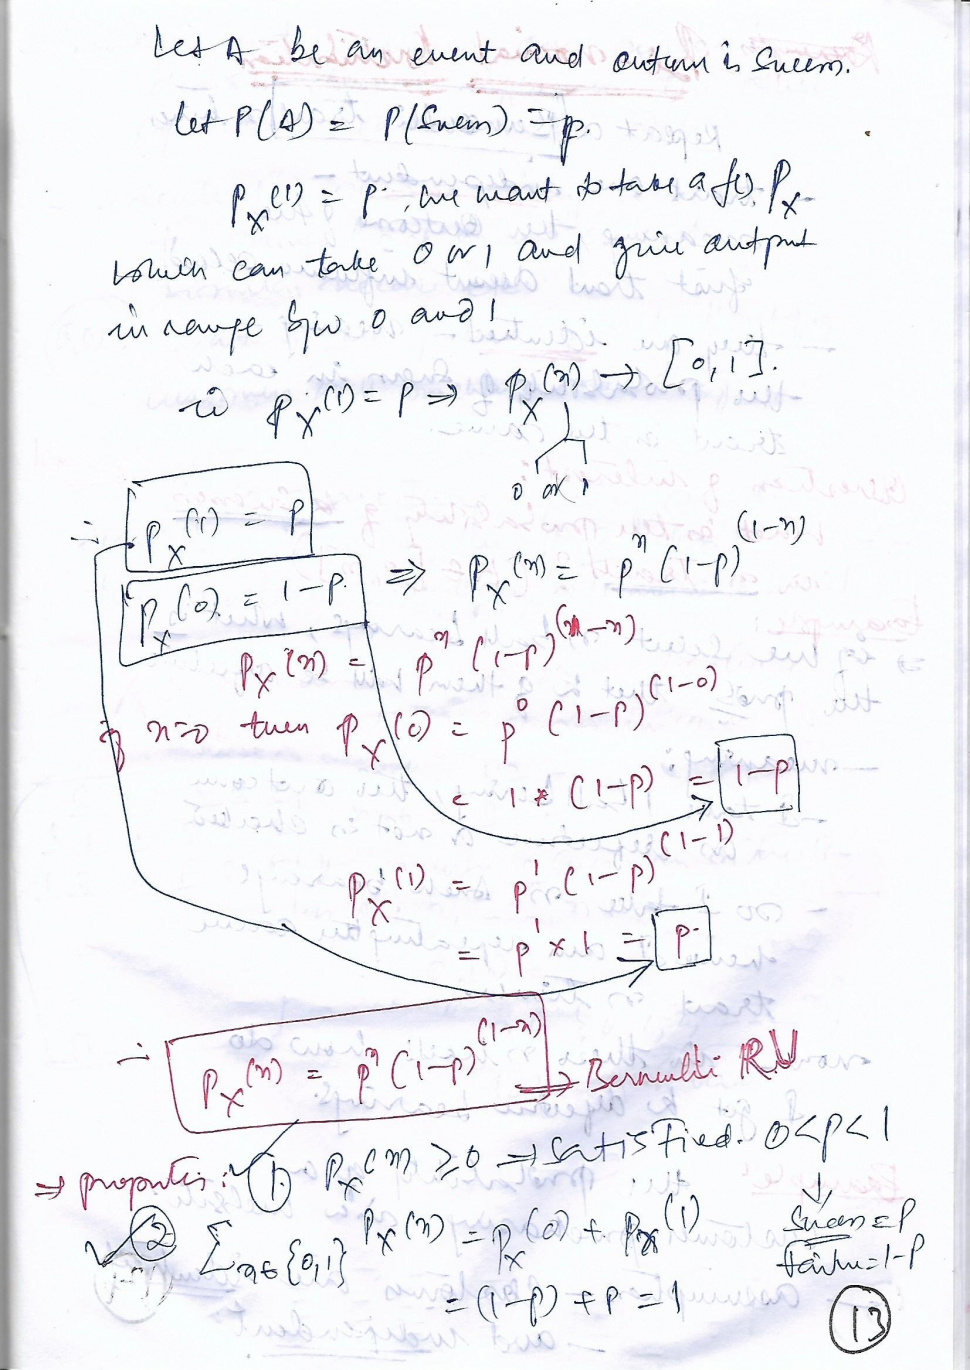 Let A be an event and outcom is Succes.
Let P(A) = P(Succes) = p.
P_X(1) = p. we want to take a f(). P_X
which can take 0 or 1 and give output
in range b/w 0 and 1
P_X(1) = P ⇒ P_X(x) → [0,1].
0 or 1
∴ P_X(1) = P
P_X(0) = 1-P. ⇒ P_X(x) = p^x (1-p)^(1-x)
P_X(x) = p^x (1-p)^(1-x)
if x=0 then P_X(0) = p^0 (1-p)^(1-0)
= 1 * (1-p) = 1-p
P_X(1) = p^1 (1-p)^(1-1)
= p^1 x 1 = p.
∴ P_X(x) = p^x (1-p)^(1-x) ⇒ Bernoulli RV
⇒ properties: 1. P_X(x) ≥ 0 → Satisfied. 0<p<1
Succes = P
failure = 1-P
2 ∑_x∈{0,1} P_X(x) = P_X(0) + P_X(1)
= (1-p) + p = 1
13